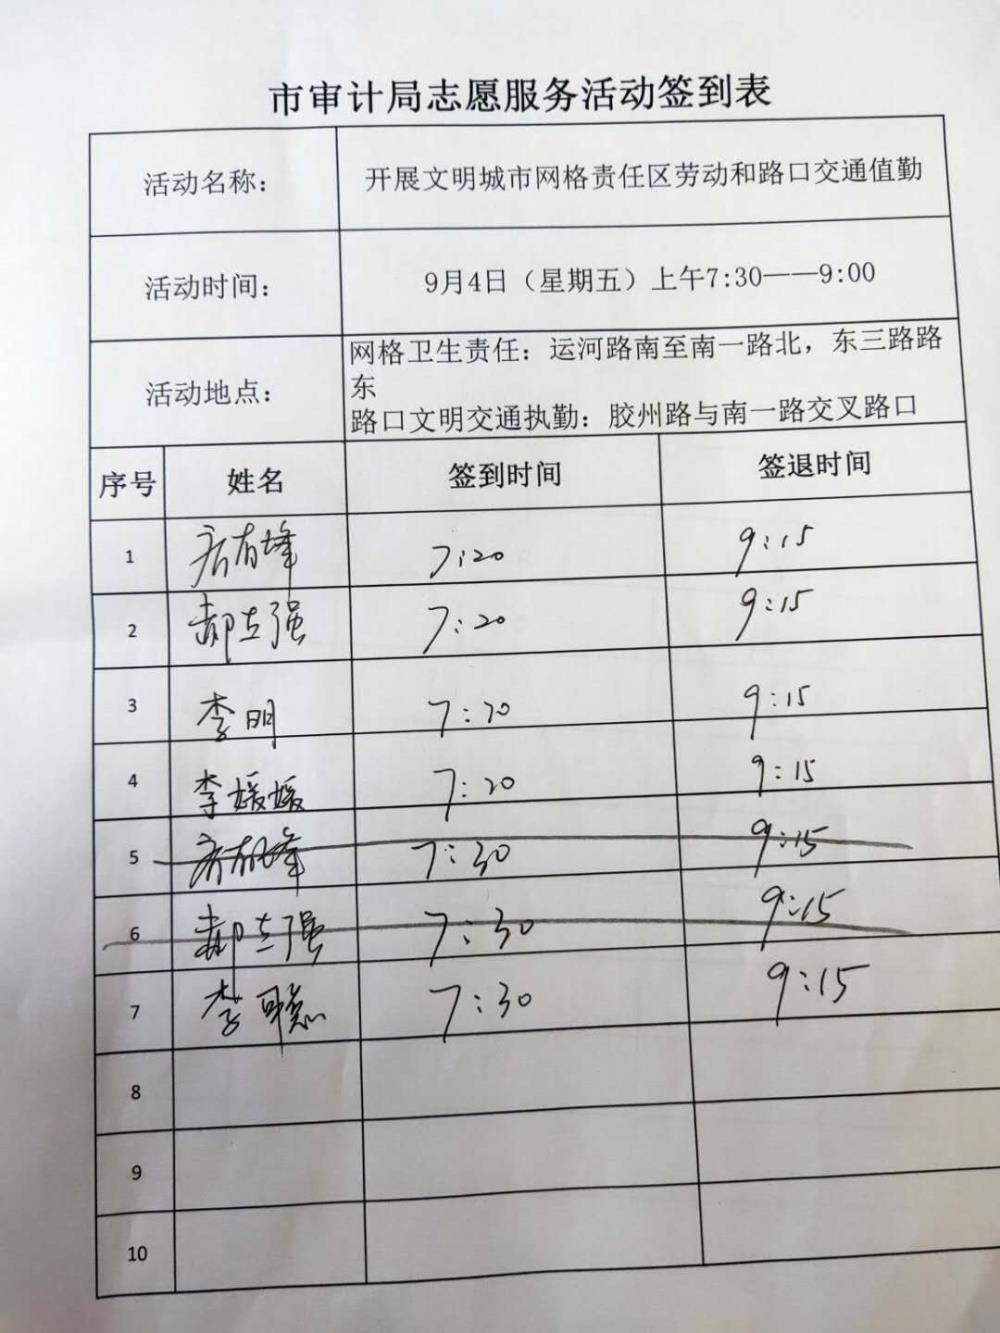 市审计局志愿服务活动签到表
活动名称： 开展文明城市网格责任区劳动和路口交通值勤
活动时间： 9月4日（星期五）上午7:30——9:00
活动地点： 网格卫生责任：运河路南至南一路北，东三路路
东
路口文明交通执勤：胶州路与南一路交叉路口
序号 姓名 签到时间 签退时间
1 7:20 9:15
2 郝立强 7:20 9:15
3 李明 7:20 9:15
4 李媛媛 7:20 9:15
5 7:30 9:15
6 郝立强 7:30 9:15
7 李聪 7:30 9:15
8
9
10